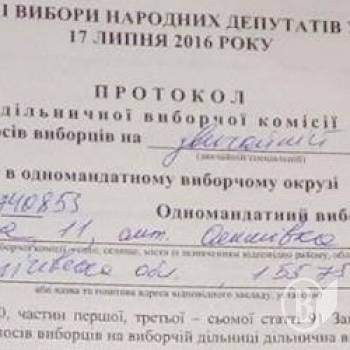 І ВИБОРИ НАРОДНИХ ДЕПУТАТІВ У
17 ЛИПНЯ 2016 РОКУ
ПРОТОКОЛ
дільничної виборчої комісії
осів виборців на звичайній
(звичайній/спеціальній)
в одномандатному виборчому окрузі
740853 Одномандатний виб
11, смт.
обл., 15575
або назва та поштова адреса відповідного закладу, установи)
0, частин першої, третьої – сьомої статті 9 За
лосів виборців на виборчій дільниці дільнична в